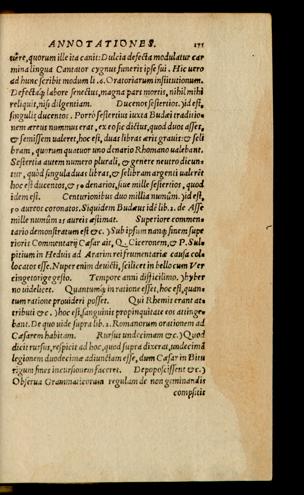 ANNOTATIONES. 175
tũre, quorum ille ita canit: Dulcia defecta modulatur car
mina lingua Cantator cygnus funeris ipse sui. Hic uero
ad hunc scribit modum li .6. Oratoriarum institutionum.
Defectaq; labore senectus, magna pars mortis, nihil mihi
reliquit, nisi diligentiam. Ducenos sestertios. )id est,
singulis ducentos. Porrò sestertius iuxta Budæi traditio⸗
nem æreus nummus erat, ex eo sic dictus, quod duos asses,
& semissem ualeret, hoc est, duas libras æris grauis: & seli
bram, quorum quatuor uno denario Rhomano ualebant.
Sestertia autem numero plurali, & genere neutro dicun⸗
tur, quòd singula duas libras, & selibram argenti ualerēt
hoc est ducentos, & 50 denarios, siue mille sestertios, quod
idem est. Centurionibus duo millia numũm. )id est,
50 aureos coronatos. Siquidem Budæus idē lib. 2. de Asse
mille numũm 25 aureis æstimat. Superiore commen⸗
tario demonstratum est &c. ) Sub ipsum nanq; finem supe
rioris Commentarij Cæsar ait, Q. Ciceronem, & P. Sul⸗
pitium in Heduis ad Ararim rei frumentariæ causa col⸗
locatos esse. Nuper enim deuicti, scilicet in bello cum Ver
cingetorige gesto. Tempore anni difficilimo. )hyber
no uidelicet. Quantumq; in ratione esset, hoc est, quan⸗
tum ratione prouideri posset. Qui Rhemis erant at⸗
tributi &c. ) hoc est, sanguinis propinquitate eos attinge⸗
bant. De quo uide supra lib. 2. Romanorum orationem ad
Cæsarem habitam. Rursus undecimam &c.) Quod
dicit rursus, respicit ad hoc, quod supra dixerat, undecimā
legionem duodecimæ adiunctam esse, dum Cæsar in Bitu
rigum fines incursionem faceret. Depoposcissent &c.)
Obserua Grammaticorum regulam de non geminandis
compositis